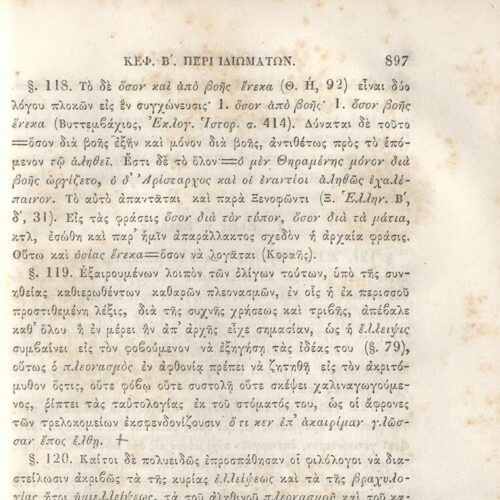 ΚΕΦ. Β΄. ΠΕΡΙ ΙΔΙΩΜΑΤΩΝ. 897
§. 118. Τὸ δὲ ὅσον καὶ ἀπὸ βοῆς ἕνεκα (Θ. Ή, 92) εἶναι δύο
λόγου πλοκῶν εἰς ἓν συγχώνευσις· 1. ὅσον ἀπὸ βοῆς· 1. ὅσον βοῆς
ἕνεκα (Βυττεμβάχιος, Ἐκλογ. Ἱστορ. σ. 414). Δύναται δὲ τοῦτο
=ὅσον διὰ βοῆς ἐξῆν καὶ μόνον διὰ βοῆς, ἀντιθέτως πρὸς τὸ ἑπό-
μενον τῷ ἀληθεῖ. Ἔστι δὲ τὸ ὅλον=ὁ μὲν Θηραμένης μόνον διὰ
βοῆς ὠργίζετο, ὁ δ' Ἀρίσταρχος καὶ οἱ ἐναντίοι ἀληθῶς ἐχαλέ-
παινον. Τὸ αὐτὸ ἀπαντᾶται καὶ παρὰ Ξενοφῶντι (Ξ. Ἑλλην. Β΄,
δ΄, 31). Εἰς τὰς φράσεις ὅσον διὰ τὸν τόπον, ὅσον διὰ τὰ μάτια,
κτλ, ἐσώθη καὶ παρ' ἡμῖν ἀπαράλλακτος σχεδὸν ἡ ἀρχαία φράσις.
Οὕτω καὶ ὁσίας ἕνεκα=ὅσον νὰ λογᾶται (Κοραῆς).
§. 119. Ἐξαιρουμένων λοιπὸν τῶν ὀλίγων τούτων, ὑπὸ τῆς συν-
ηθείας καθιερωθέντων καθαρῶν πλεονασμῶν, ἐν οἷς ἡ ἐκ περισσοῦ
προστιθεμένη λέξις, διὰ τῆς συχνῆς χρήσεως καὶ τριβῆς, ἀπέβαλε
καθ' ὅλου ἢ ἐν μέρει ἣν ἀπ' ἀρχῆς εἶχε σημασίαν, ὡς ἡ ἔλλειψις
συμβαίνει εἰς τὸν φοβούμενον νὰ ἐξηγήσῃ τὰς ἰδέας του (§. 79),
οὕτως ὁ πλεονασμὸς ἐν ἀφθονίᾳ πρέπει νὰ ζητηθῇ εἰς τὸν ἀκριτό-
μυθον ὅςτις, οὔτε φόβῳ οὔτε συστολῇ οὔτε σκέψει χαλιναγωγούμε-
νος, ῥίπτει τὰς ταυτολογίας ἐκ τοῦ στόματός του, ὡς οἱ ἄφρονες
τῶν τρελοκομείων ἐκσφενδονίζουσιν ὅτι κεν ἐπ' ἀκαιρίμαν γλῶσ-
σαν ἔπος ἔλθῃ. +
§. 120. Καίτοι δὲ πολυειδῶς ἐπροσπάθησαν οἱ φιλόλογοι νὰ δια-
στείλωσιν ἀκριβῶς τὰ τῆς κυρίας ἐλλείψεως καὶ τὰ τῆς βραχυλο-
γίας ἤτοι ἡμιελλείψεως, τὰ τοῦ ἀληθινοῦ πλεονασμοῦ καὶ τοῦ κα-